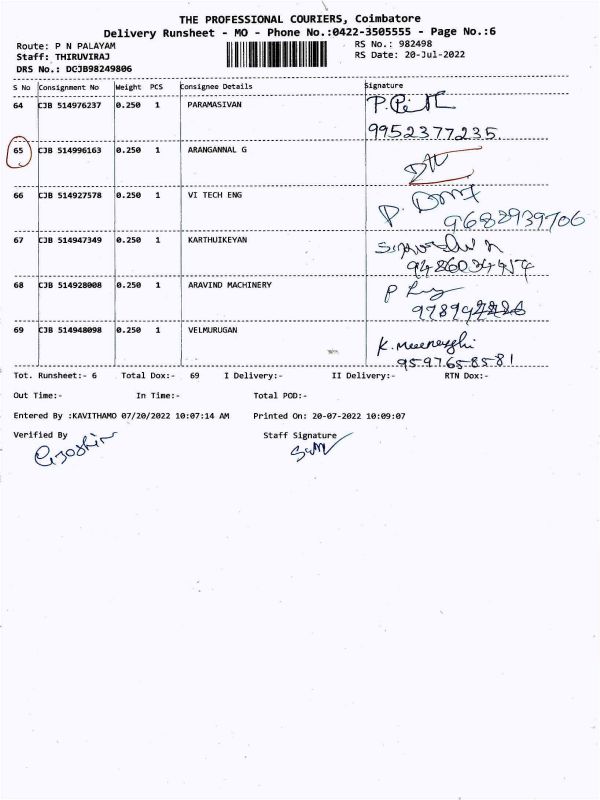 THE PROFESSIONAL COURIERS, Coimbatore
Delivery Runsheet - MO - Phone No.:0422-3505555 - Page No.:6
Route: P N PALAYAM RS No.: 982498
Staff: THIRUVIRAJ RS Date: 20-Jul-2022
DRS No.: DGJB98249806
S No Consignment No Weight PCS Consignee Details Signature
64 CJB 514976237 0.250 1 PARAMASIVAN
9952377235
65 CJB 514996163 0.250 1 ARANGANNAL G
66 CJB 514927578 0.250 1 VI TECH ENG
9682939706
67 CJB 514947349 0.250 1 KARTHUIKEYAN
68 CJB 514928008 0.250 1 ARAVIND MACHINERY
69 CJB 514948098 0.250 1 VELMURUGAN
K. Meenaghi
9597658581
Tot. Runsheet:- 6 Total Dox:- 69 I Delivery:- II Delivery:- RTN Dox:-
Out Time:- In Time:- Total POD:-
Entered By :KAVITHAMO 07/20/2022 10:07:14 AM Printed On: 20-07-2022 10:09:07
Verified By Staff Signature